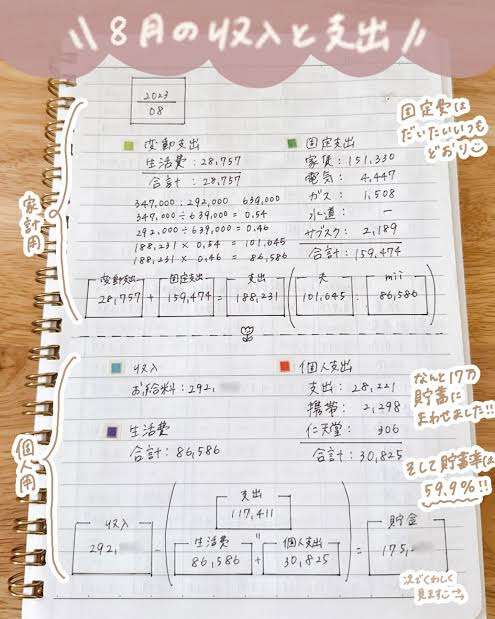 8月の収入と支出
2023
08
固定費は
だいたいいつも
どおり
家計用
変動支出
生活費:28,757
合計:28,757
347,000:292,000 639,000
347,000÷639,000=0.54
292,000÷639,000=0.46
188,231×0.54=101,645
188,231×0.46=86,586
固定支出
家賃:151,330
電気:4,447
ガス:1,508
水道:-
サブスク:2,189
合計:159,474
変動支出 固定支出 支出 夫 mii
28,757 + 159,474 = 188,231 ( 101,645 : 86,586 )
個人用
収入
お給料:292,
生活費
合計:86,586
個人支出
支出:28,221
携帯:2,298
仁天堂:306
合計:30,825
なんと17万
貯蓄に
まわせました!!
そして貯蓄率は
59.9%!!
支出
117,411
"
収入 生活費 個人支出 貯金
292, - ( 86,586 + 30,825 ) = 175,
次でくわしく
見ますこっ